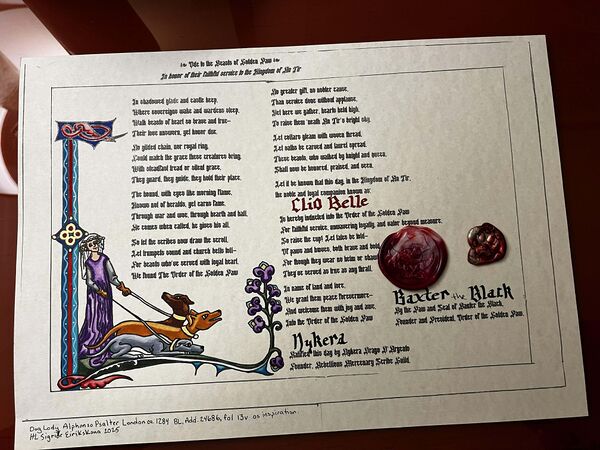 Ode to the Beasts of Golden Paw
In honor of their faithful service to the Kingdom of An Tir
In shadowed glade and castle keep,
Where sovereigns wake and wardens sleep,
Walk beasts of heart so brave and true—
Their love unsworn, yet honor due.
No gilded chain, nor royal ring,
Could match the grace these creatures bring.
With steadfast tread or silent grace,
They guard, they guide, they hold their place.
The hound, with eyes like morning flame,
Knows not of heralds, yet earns fame.
Through war and woe, through hearth and hall,
He comes when called, he gives his all.
So let the scribes now draw the scroll,
Let trumpets sound and church bells toll—
For beasts who've served with loyal heart,
We found The Order of the Golden Paw
No greater gift, no nobler cause,
Than service done without applause.
Yet here we gather, hearts held high,
To raise them 'neath An Tir's bright sky.
Let collars gleam with woven thread,
Let oaths be carved and laurel spread.
These beasts, who walked by knight and queen,
Shall now be honored, praised, and seen.
Let it be known that this day, in the Kingdom of An Tir,
the noble and loyal companion known as:
Clio Belle
Is hereby inducted into the Order of the Golden Paw
For faithful service, unwavering loyalty, and valor beyond measure.
So raise the cup! Let tales be told—
Of paws and hooves, both brave and bold,
For though they wear no helm or
They've served as true as any thrall.
In name of land and lore,
We grant them peace forevermore—
And welcome them with joy and awe,
Into the Order of the Golden Paw
Nykera
Ratified this day by Nykera Drago D'Argento
Founder, Rebellious Mercenary Scribe Guild.
Baxter the Black
By the Paw and Seal of Baxter the Black,
Founder and President, Order of the Golden Paw.
Dog Lady, Alphonso Psalter London ca. 1284 BL, Add. 24686, fol 13v as inspiration.
HL Sigrior Eirikskona 2025